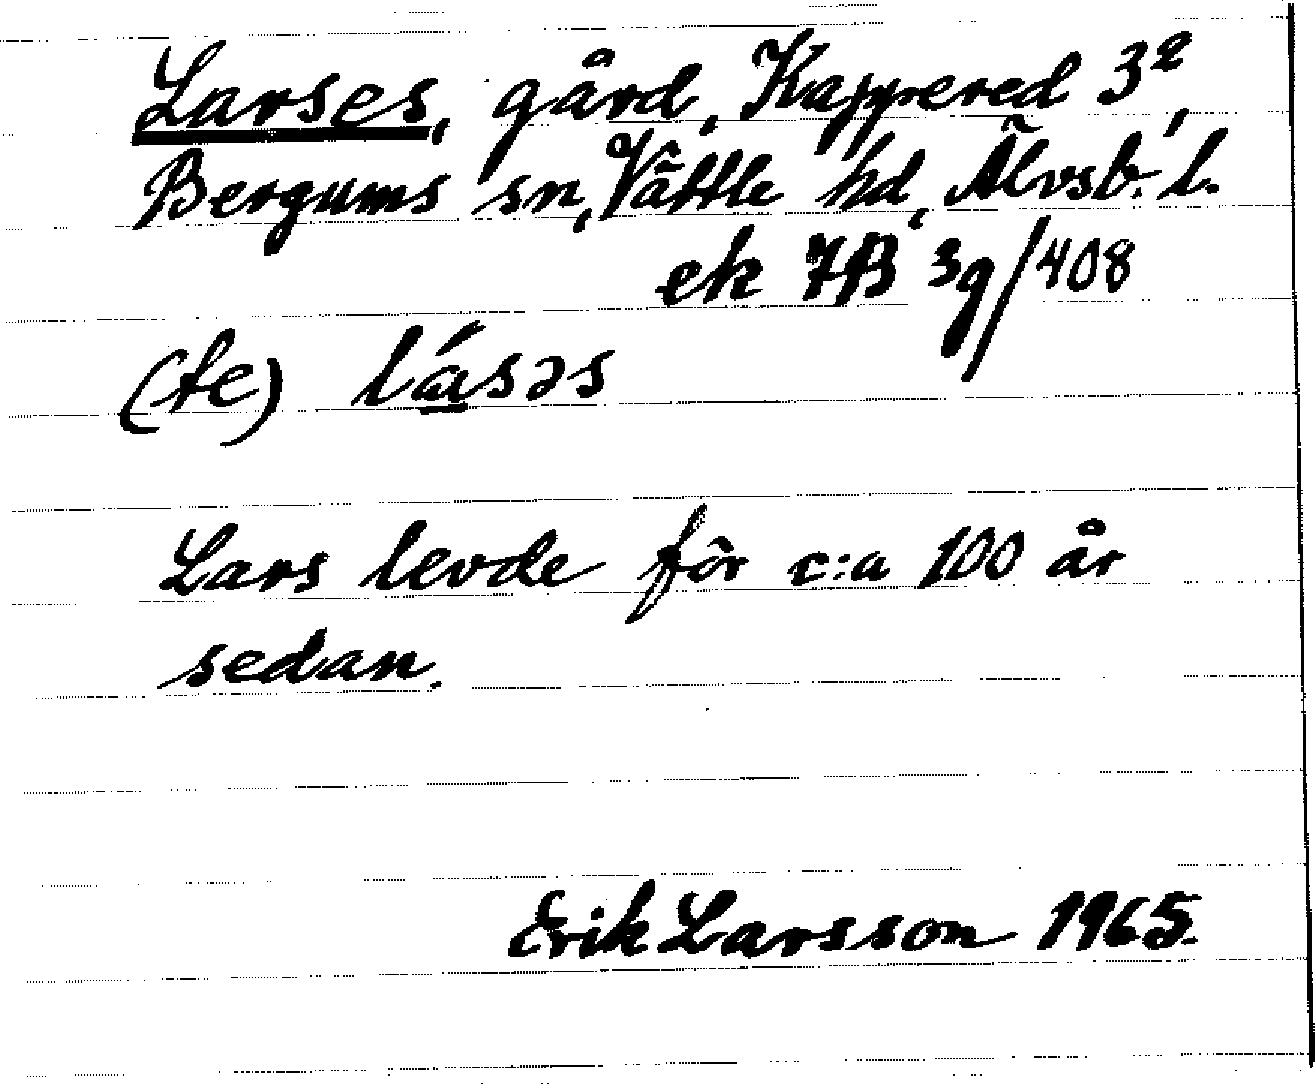 Larses, gård, Kappered 3²,
Bergums sn, Vättle hd, Älvsb. l.
ek 7B 3g/408
(te) lásəs
Lars levde för c:a 100 år
sedan.
Erik Larsson 1965.